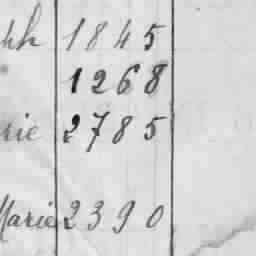 phh 1845
1268
rie 2785
Marie 2390